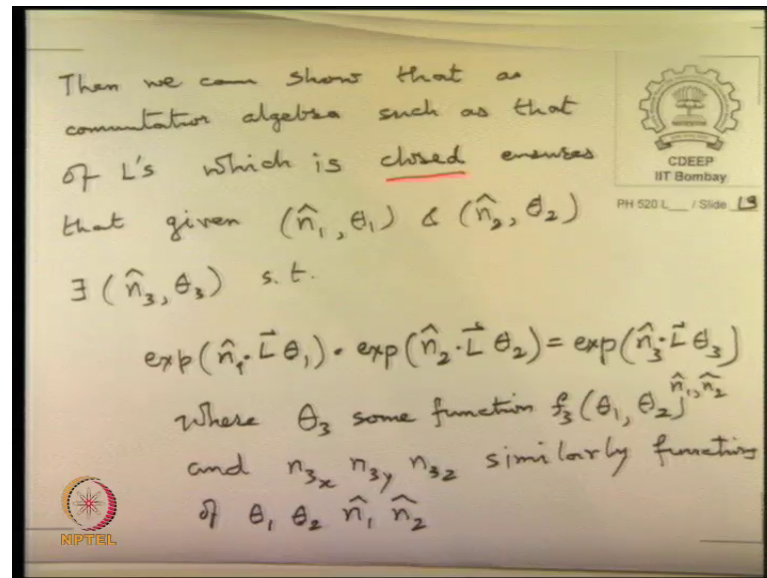 Then we can show that a
commutator algebra such as that
of L's which is closed ensures
that given (n̂₁, θ₁) & (n̂₂, θ₂)
∃ (n̂₃, θ₃) s.t.
exp(n̂₁·L⃗ θ₁) · exp(n̂₂·L⃗ θ₂) = exp(n̂₃·L⃗ θ₃)
where θ₃ some function f₃(θ₁, θ₂) n̂₁, n̂₂
and n₃ₓ n₃y n₃z similarly functions
of θ₁ θ₂ n̂₁ n̂₂
CDEEP
IIT Bombay
PH 520 L / Slide 19
NPTEL